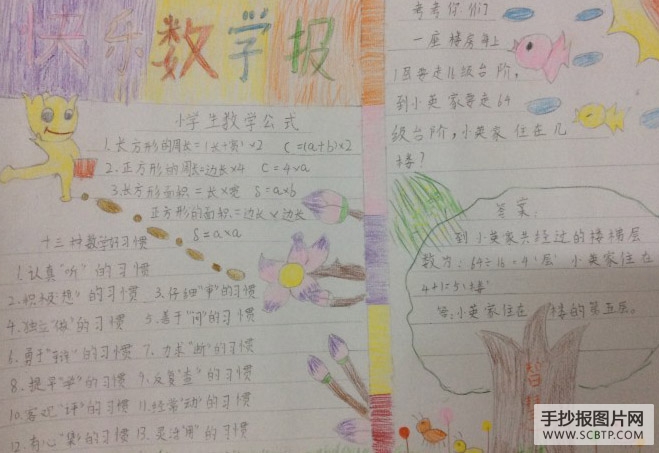 快乐数学报
小学生数学公式
1.长方形的周长=(长+宽)×2 C=(a+b)×2
2.正方形的周长=边长×4 C=4×a
3.长方形面积=长×宽 S=a×b
正方形的面积=边长×边长
S=a×a
十三种数学的习惯
1.认真"听"的习惯
2.积极"想"的习惯 3.仔细"审"的习惯
4.独立"做"的习惯 5.善于"问"的习惯
6.勇于"辩"的习惯 7.力求"断"的习惯
8.提早"学"的习惯 9.反复"查"的习惯
10.客观"评"的习惯 11.经常"动"的习惯
12.有心"集"的习惯 13.灵活"用"的习惯
考考你们
一座楼房每上
1层要走16级台阶,
到小英家要走64
级台阶,小英家住在几
楼?
答案:
到小英家共经过的楼梯层
数为:64÷16=4层 小英家住在
4+1=5楼
答:小英家住在 楼的第五层。
手抄报图片网
WWW.SCBTP.COM